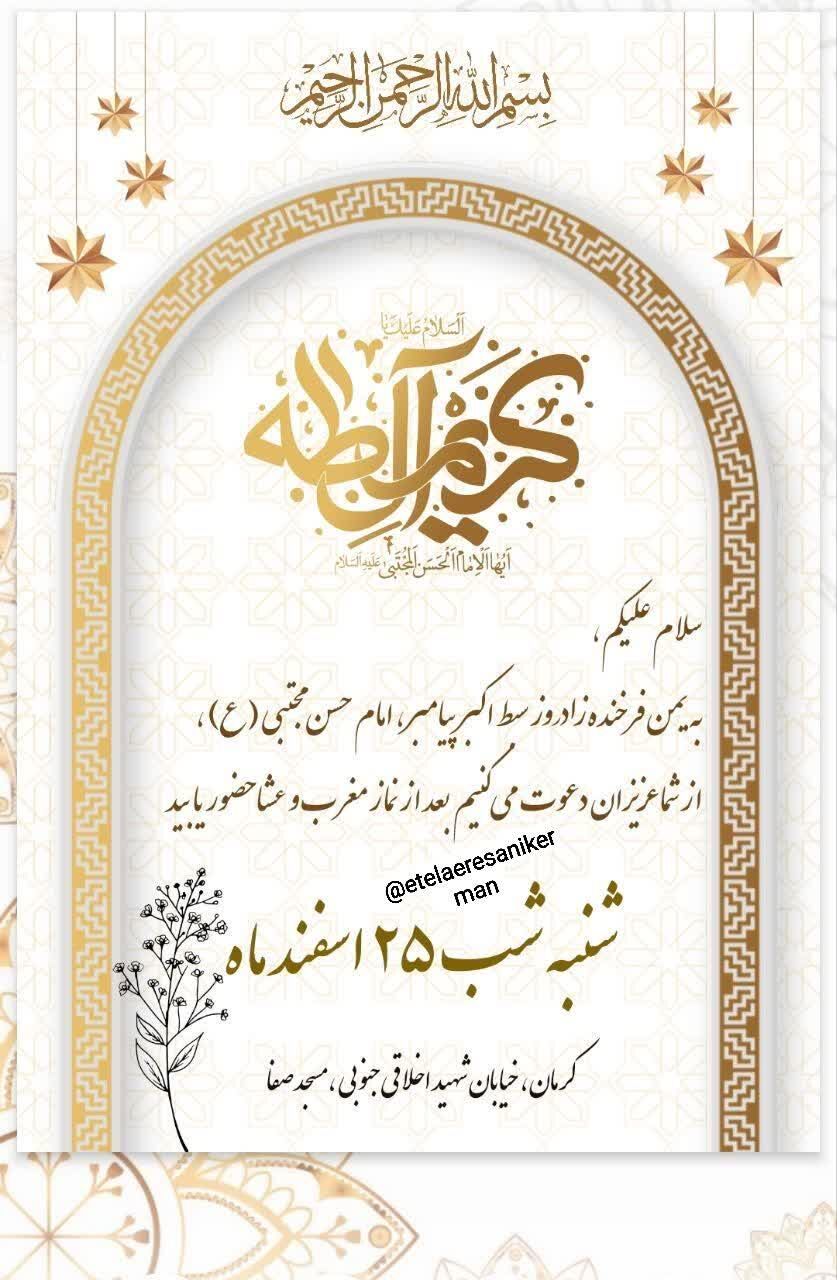 بِسْمِ اللهِ الرَّحْمنِ الرَّحِيْمِ
اَلسَّلامُ عَلَيْكَ يا
كريم آل طه
اَيُّهَا اَلْاِمامُ اَلْحَسَنِ اَلْمُجْتَبى عَلَيْهِ السَّلام
سلام علیکم ،
به یمن فرخنده زادروز سبط اکبر پیامبر، امام حسن مجتبی (ع) ،
از شما عزیزان دعوت می کنیم بعد از نماز مغرب و عشا حضور یابید
@etelaeresaniker
man
شنبه شب ۲۵ اسفند ماه
کرمان، خیابان شهید اخلاقی جنوبی ، مسجد صفا